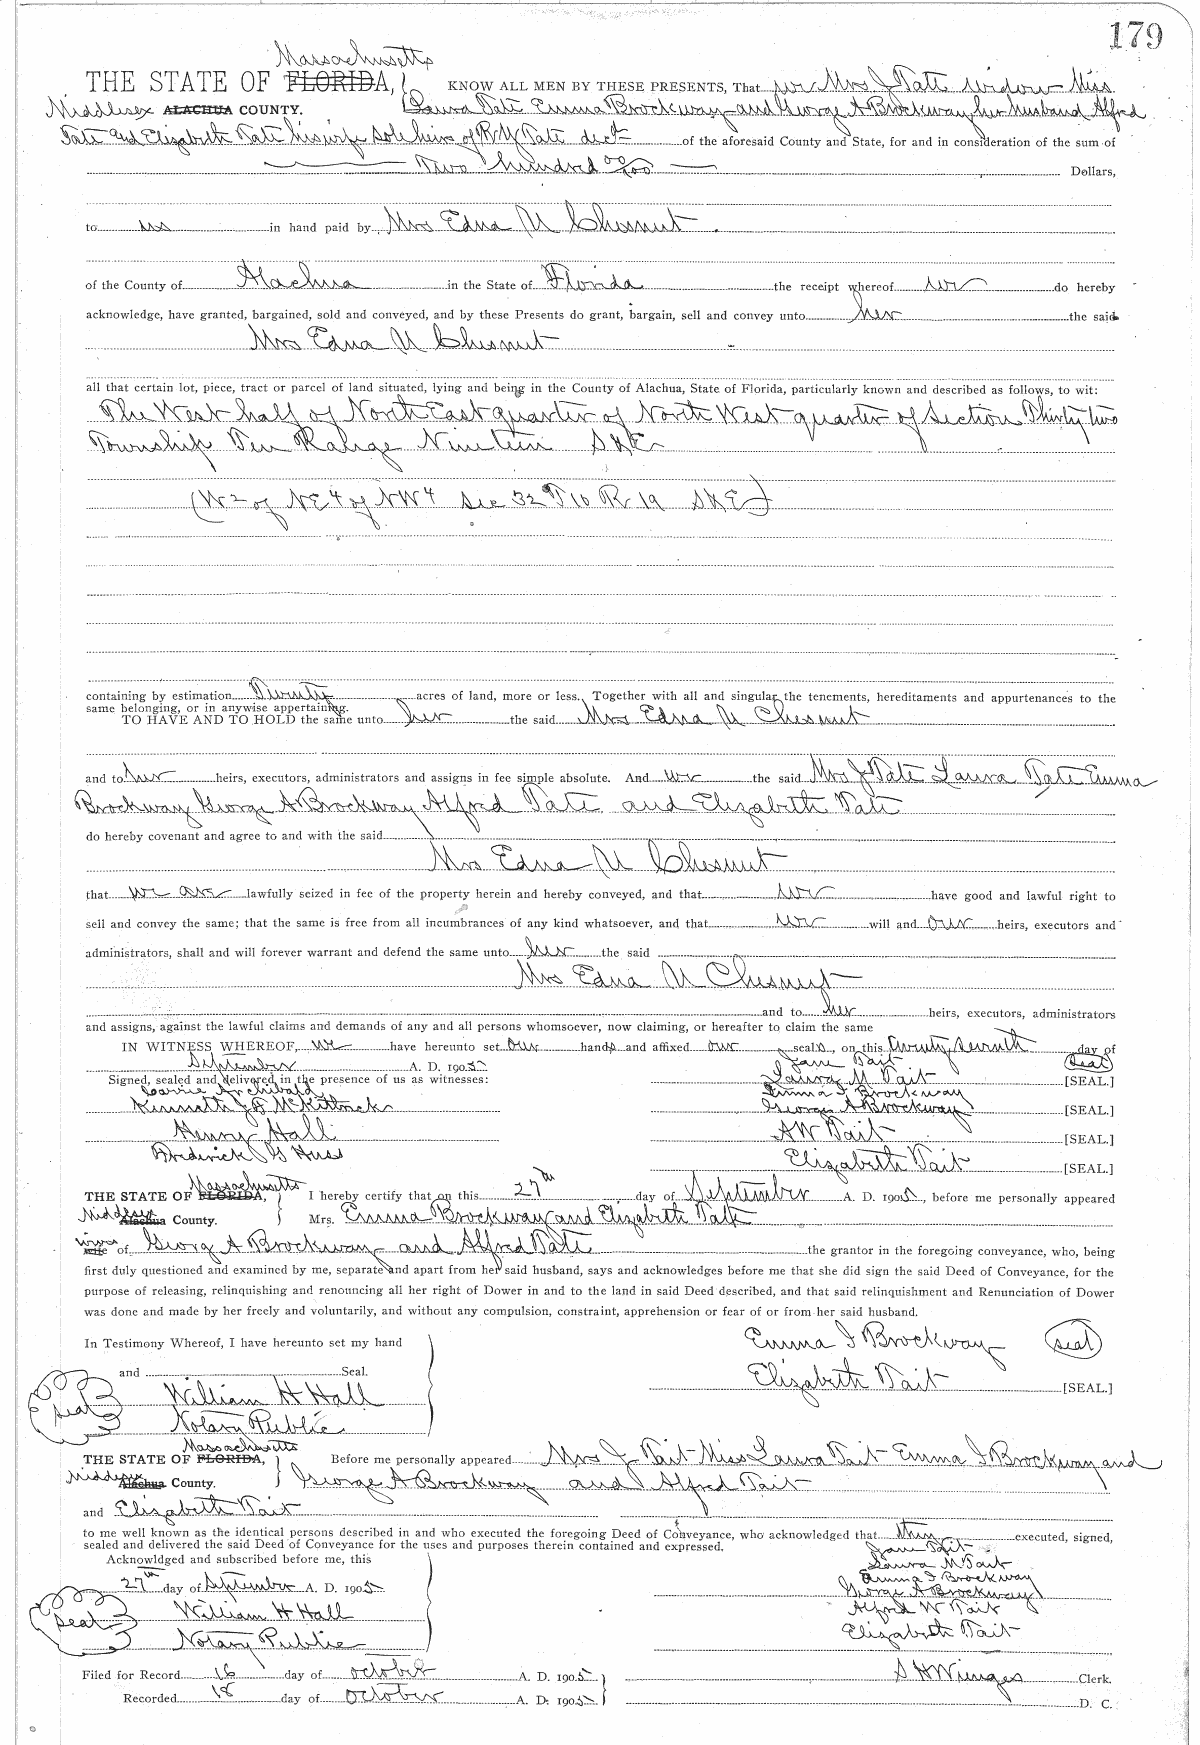 179
Massachusetts
THE STATE OF FLORIDA, KNOW ALL MEN BY THESE PRESENTS, That we Mrs J Tate widow Miss
Middlesex ALACHUA COUNTY. Laura Tate Emma Brockway and George A Brockway her husband Alfred
Tate and Elizabeth Tate his wife sole heirs of R Y Tate decd of the aforesaid County and State, for and in consideration of the sum of
Two hundred 00/100 Dollars,
to us in hand paid by Mrs Edna M Chesnut.
of the County of Alachua in the State of Florida the receipt whereof we do hereby
acknowledge, have granted, bargained, sold and conveyed, and by these Presents do grant, bargain, sell and convey unto her the said
Mrs Edna M Chesnut
all that certain lot, piece, tract or parcel of land situated, lying and being in the County of Alachua, State of Florida, particularly known and described as follows, to wit:
The West half of North East quarter of North West quarter of Section Thirty two
Township Ten Range Nineteen S & E
(W 2 of NE 4 of NW 4 Sec 32 T 10 R 19 S & E)
containing by estimation Twenty acres of land, more or less. Together with all and singular the tenements, hereditaments and appurtenances to the
same belonging, or in anywise appertaining.
TO HAVE AND TO HOLD the same unto her the said Mrs Edna M Chesnut
and to her heirs, executors, administrators and assigns in fee simple absolute. And we the said Mrs J Tate Laura Tate Emma
Brockway George A Brockway Alfred Tate and Elizabeth Tate
do hereby covenant and agree to and with the said
Mrs Edna M Chesnut
that we are lawfully seized in fee of the property herein and hereby conveyed, and that we have good and lawful right to
sell and convey the same; that the same is free from all incumbrances of any kind whatsoever, and that we will and our heirs, executors and
administrators, shall and will forever warrant and defend the same unto her the said
Mrs Edna M Chesnut
and to her heirs, executors, administrators
and assigns, against the lawful claims and demands of any and all persons whomsoever, now claiming, or hereafter to claim the same
IN WITNESS WHEREOF, we have hereunto set our hands and affixed our seals, on this twenty seventh day of
September A. D. 1905 Jane Tait (Seal)
Signed, sealed and delivered in the presence of us as witnesses: Laura M Tait [SEAL.]
Carrie Archibald Emma J Brockway
Kenneth J F McKittrick George A Brockway [SEAL.]
Henry Hall A W Tait [SEAL.]
Brederick G Huss Elizabeth Tait [SEAL.]
Massachusetts
THE STATE OF FLORIDA, I hereby certify that on this 27th day of September A. D. 1905, before me personally appeared
Middlesex Alachua County. Mrs. Emma Brockway and Elizabeth Tate
wives wife of George A Brockway and Alfred Tate the grantor in the foregoing conveyance, who, being
first duly questioned and examined by me, separate and apart from her said husband, says and acknowledges before me that she did sign the said Deed of Conveyance, for the
purpose of releasing, relinquishing and renouncing all her right of Dower in and to the land in said Deed described, and that said relinquishment and Renunciation of Dower
was done and made by her freely and voluntarily, and without any compulsion, constraint, apprehension or fear of or from her said husband.
In Testimony Whereof, I have hereunto set my hand Emma J Brockway (seal)
and Seal.
Elizabeth Tait [SEAL.]
Seal William H Hall
Notary Public
Massachusetts
THE STATE OF FLORIDA, Before me personally appeared Mrs J Tait Miss Laura Tait Emma J Brockway and
Middlesex Alachua County. George A Brockway and Alfred Tait
and Elizabeth Tait
to me well known as the identical persons described in and who executed the foregoing Deed of Conveyance, who acknowledged that they executed, signed,
sealed and delivered the said Deed of Conveyance for the uses and purposes therein contained and expressed.
Acknowldged and subscribed before me, this Jane Tait
Laura M Tait
27th day of September A. D. 1905 Emma J Brockway
George A Brockway
Seal William H Hall Alfred W Tait
Notary Public Elizabeth Tait
Filed for Record 16 day of October A. D. 1905 S H Wienges Clerk.
Recorded 18 day of October A. D. 1905 D. C.